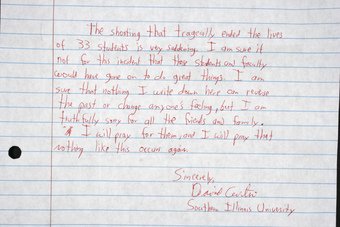 The shooting that tragically ended the lives
of 33 students is very saddening. I am sure if
not for this incident that these students and faculty
would have gone on to do great things. I am
sure that nothing I write down here can reverse
the past or change anyone's feeling, but I am
truthfully sorry for all the friends and family.
I will pray for them, and I will pray that
nothing like this occurs again.
Sincerely,
David
Southern Illinois University